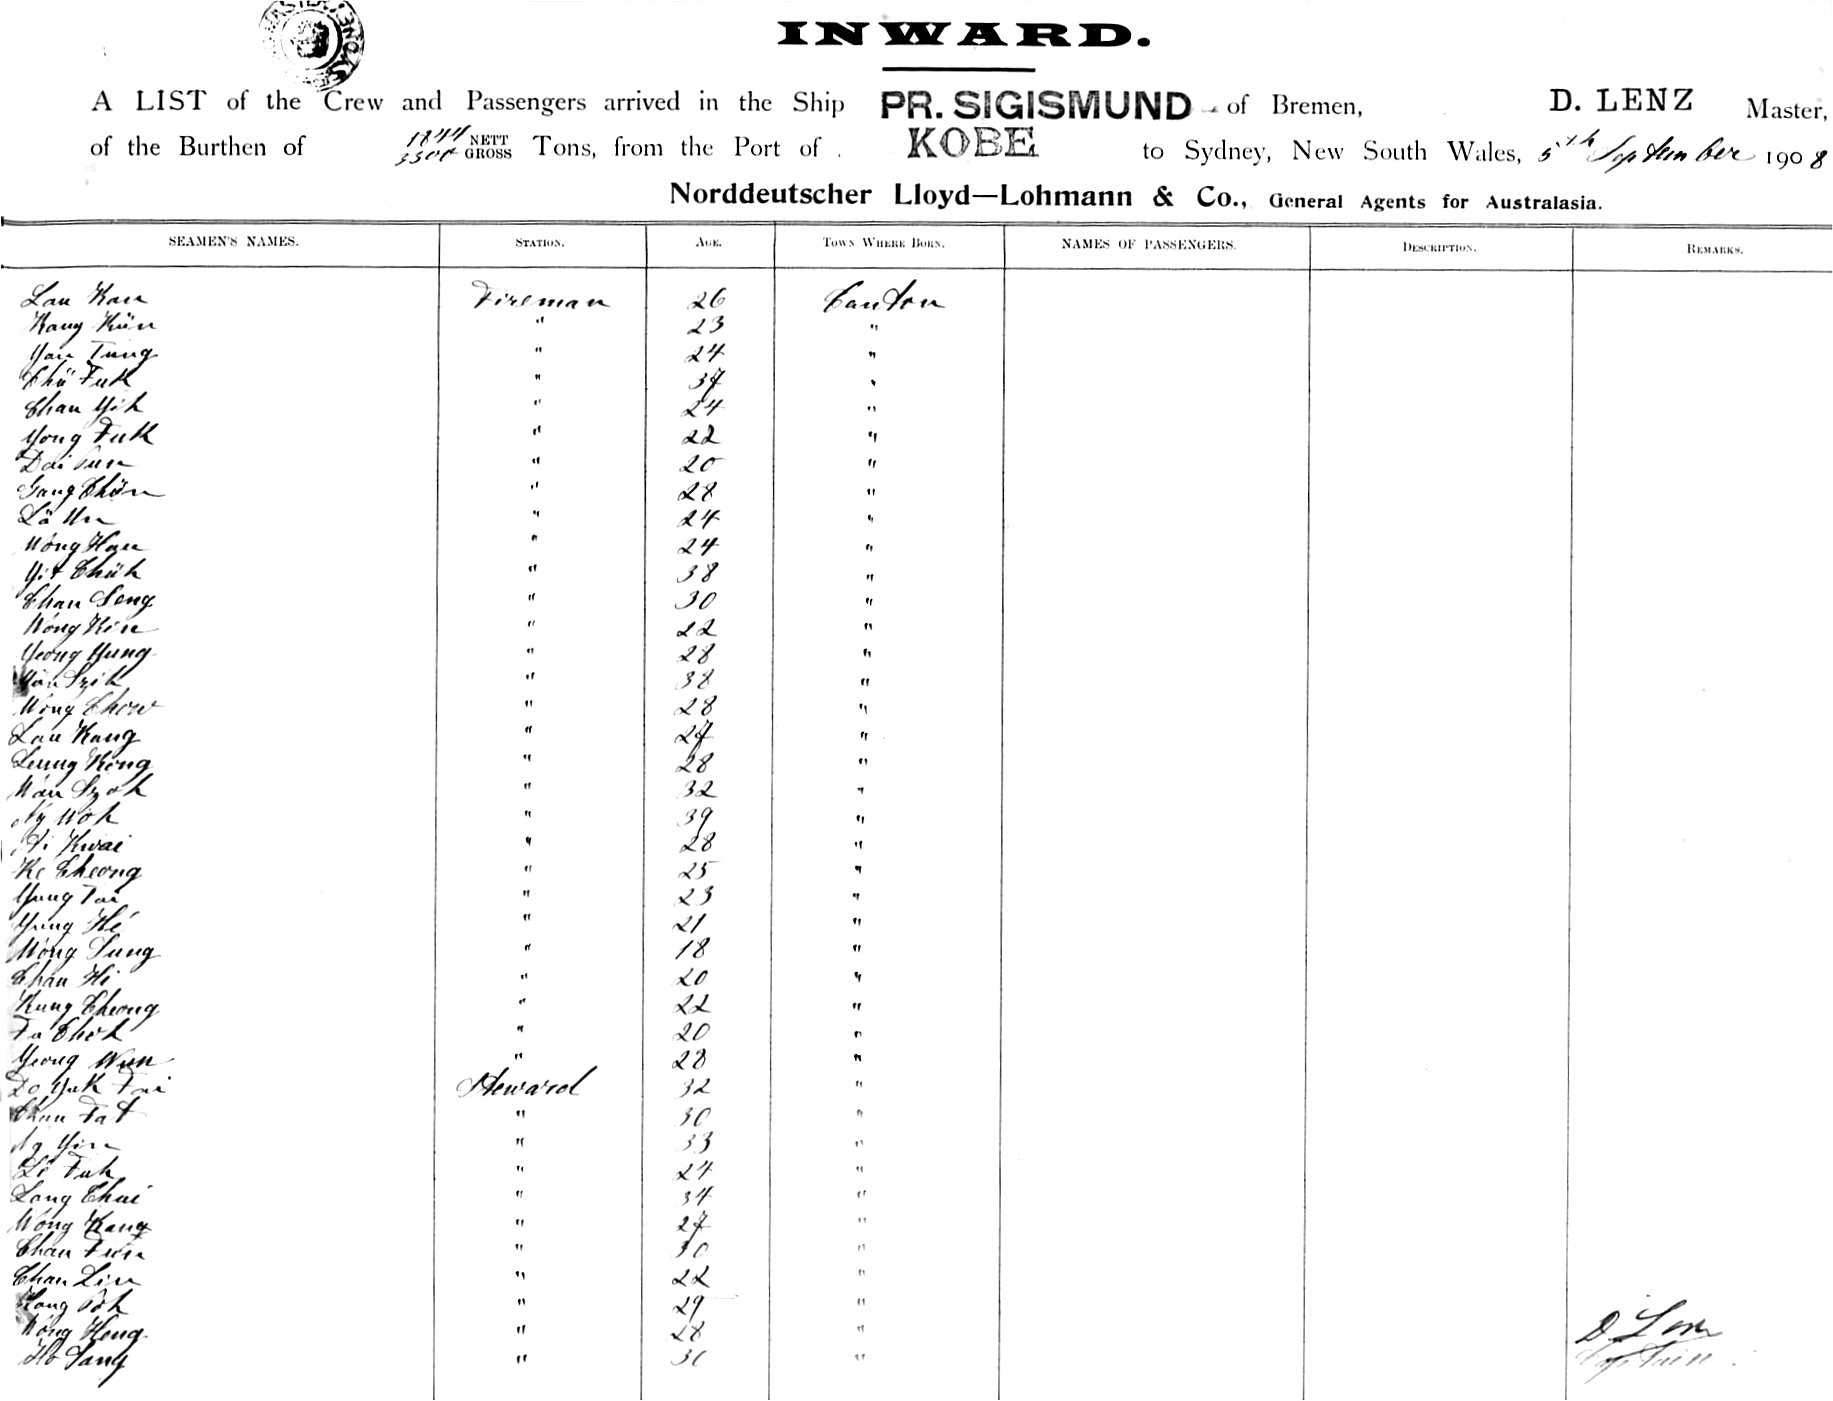 INWARD.
A LIST of the Crew and Passengers arrived in the Ship PR. SIGISMUND of Bremen, D. LENZ Master,
of the Burthen of 1844 NETT 3300 GROSS Tons, from the Port of KOBE to Sydney, New South Wales, 5th September 1908
Norddeutscher Lloyd—Lohmann & Co., General Agents for Australasia.
SEAMEN'S NAMES. STATION. AGE. TOWN WHERE BORN. NAMES OF PASSENGERS. DESCRIPTION. REMARKS.
Lau Kau Fireman 26 Canton
Kang Kün " 23 "
Yau Tung " 24 "
Chü Fuk " 37 "
Chan Yik " 24 "
Yong Fuk " 22 "
Dai Sun " 20 "
Gang Chün " 28 "
Lä Un " 24 "
Wong Hau " 24 "
Yit Chük " 38 "
Chan Seng " 30 "
Wong Kin " 22 "
Yeong Yung " 28 "
Szik " 38 "
Wong Chow " 28 "
Lau Kang " 27 "
Leung Kong " 28 "
Wau Szok " 32 "
Ng Wok " 39 "
Kwai " 28 "
Ke Cheong " 25 "
Yung Tai " 23 "
Yung Hé " 21 "
Wong Sung " 18 "
Chan Hi " 20 "
Kung Cheong " 22 "
Fu Chok " 20 "
Yeong Wun " 28 "
Do Yuk Tai Steward 32 "
Chan Fat " 30 "
Ng Yin " 33 "
Li Fuk " 24 "
Lang Chui " 34 "
Wong Kang " 27 "
Chan Fun " 30 "
Chan Lin " 22 "
Hang Pok " 29 "
Wong Heng " 28 "
Ho Sang " 30 "
D Lenz
Captain